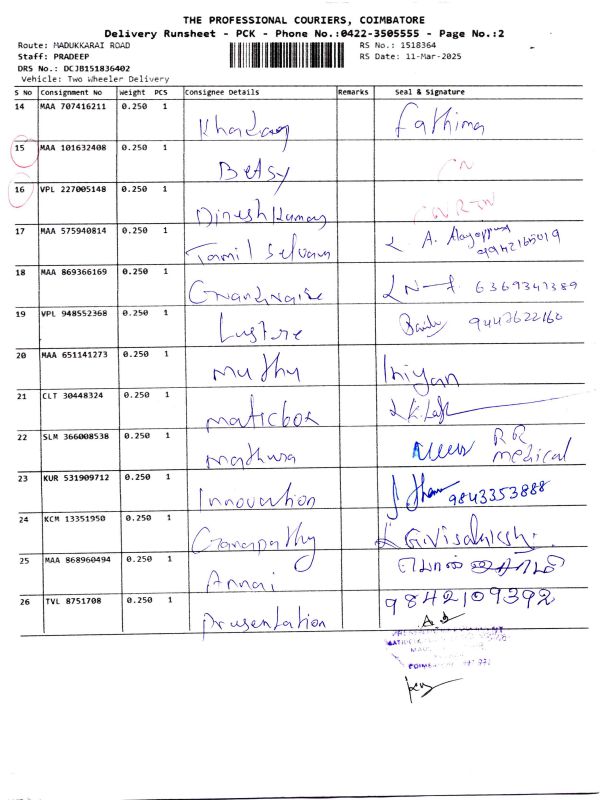 THE PROFESSIONAL COURIERS, COIMBATORE
Delivery Runsheet - PCK - Phone No.:0422-3505555 - Page No.:2
Route: MADUKKARAI ROAD RS No.: 1518364
Staff: PRADEEP RS Date: 11-Mar-2025
DRS No.: DCJB151836402
Vehicle: Two Wheeler Delivery
S No Consignment No Weight PCS Consignee Details Remarks Seal & Signature
14 MAA 707416211 0.250 1 Fathima
15 MAA 101632408 0.250 1 Betsy
16 VPL 227005148 0.250 1 Dineshkumar
17 MAA 575940814 0.250 1 Tamil Selvan
18 MAA 869366169 0.250 1 6369347389
19 VPL 948552368 0.250 1 Lustre 9447622160
20 MAA 651141273 0.250 1 Muthu Iniyan
21 CLT 30448324 0.250 1 maticbox
22 SLM 366008538 0.250 1 mathura RR medical
23 KUR 531909712 0.250 1 Innovation 9843353888
24 KCM 13351950 0.250 1 Ganapathy
25 MAA 868960494 0.250 1 Annai
26 TVL 8751708 0.250 1 Prusentation 9842109392